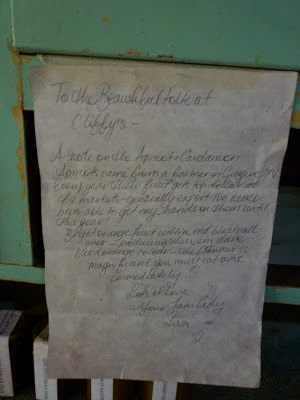 To the Beautiful folk at
Cliffy's –
A note on the Apricot & Cardamon
Apricots came from a farmer in
Every year their fruit gets top dollar at
the markets – generally export I've never
been able to get my hands on them until
this year!
Bright orange fruit with a red blush all
over – producing this very dark
blood orange color – the flavour is
magnificent you must eat some
immediately
Lots of Love
Your Jam Lady